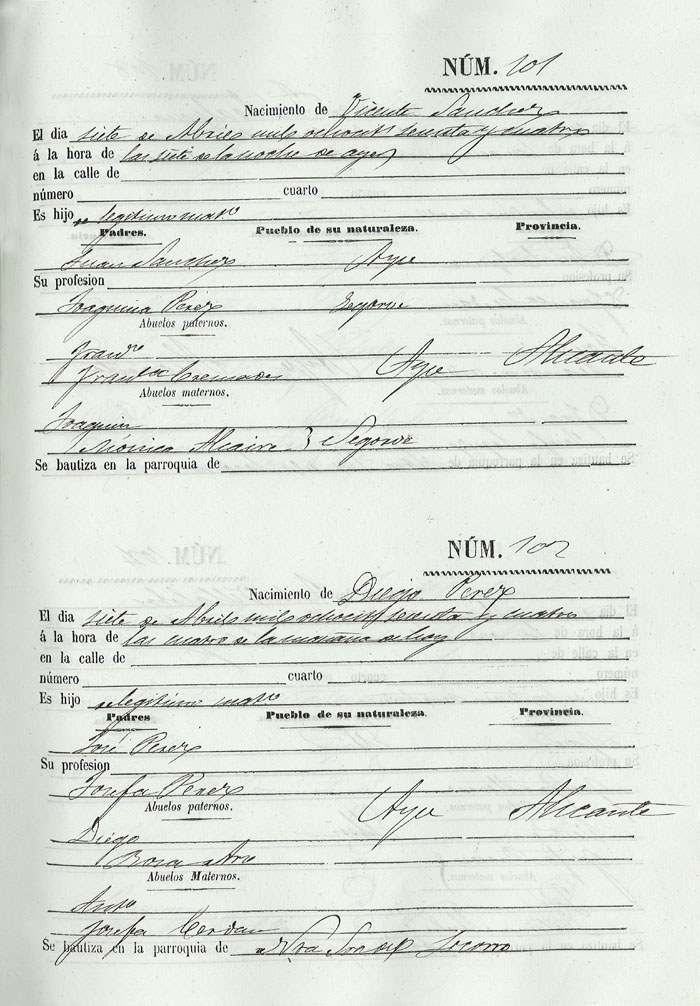 NÚM. 101
Nacimiento de Vicente Sanchez
El dia siete de Abril mil ochocits sesenta y cuatro
á la hora de las siete de la noche de ayer
en la calle de
número cuarto
Es hijo de legitimo matro
Padres. Pueblo de su naturaleza. Provincia.
Juan Sanchez Aspe
Su profesion
Joaquina Perez Segorve
Abuelos paternos.
Franco
Franca Cremades Aspe Alicante
Abuelos maternos.
Joaquin
Mónica Alcaire } Segorve
Se bautiza en la parroquia de
NÚM. 102
Nacimiento de Diego Perez
El dia siete de Abril mil ochocits sesenta y cuatro
á la hora de las cuatro de la mañana de hoy
en la calle de
número cuarto
Es hijo de legitimo matro
Padres Pueblo de su naturaleza. Provincia.
José Perez
Su profesion
Josefa Perez
Abuelos paternos. Aspe Alicante
Diego
Rosa
Abuelos Maternos.
Anto
Josefa Cerdan
Se bautiza en la parroquia de Ntra Sra del Socorro